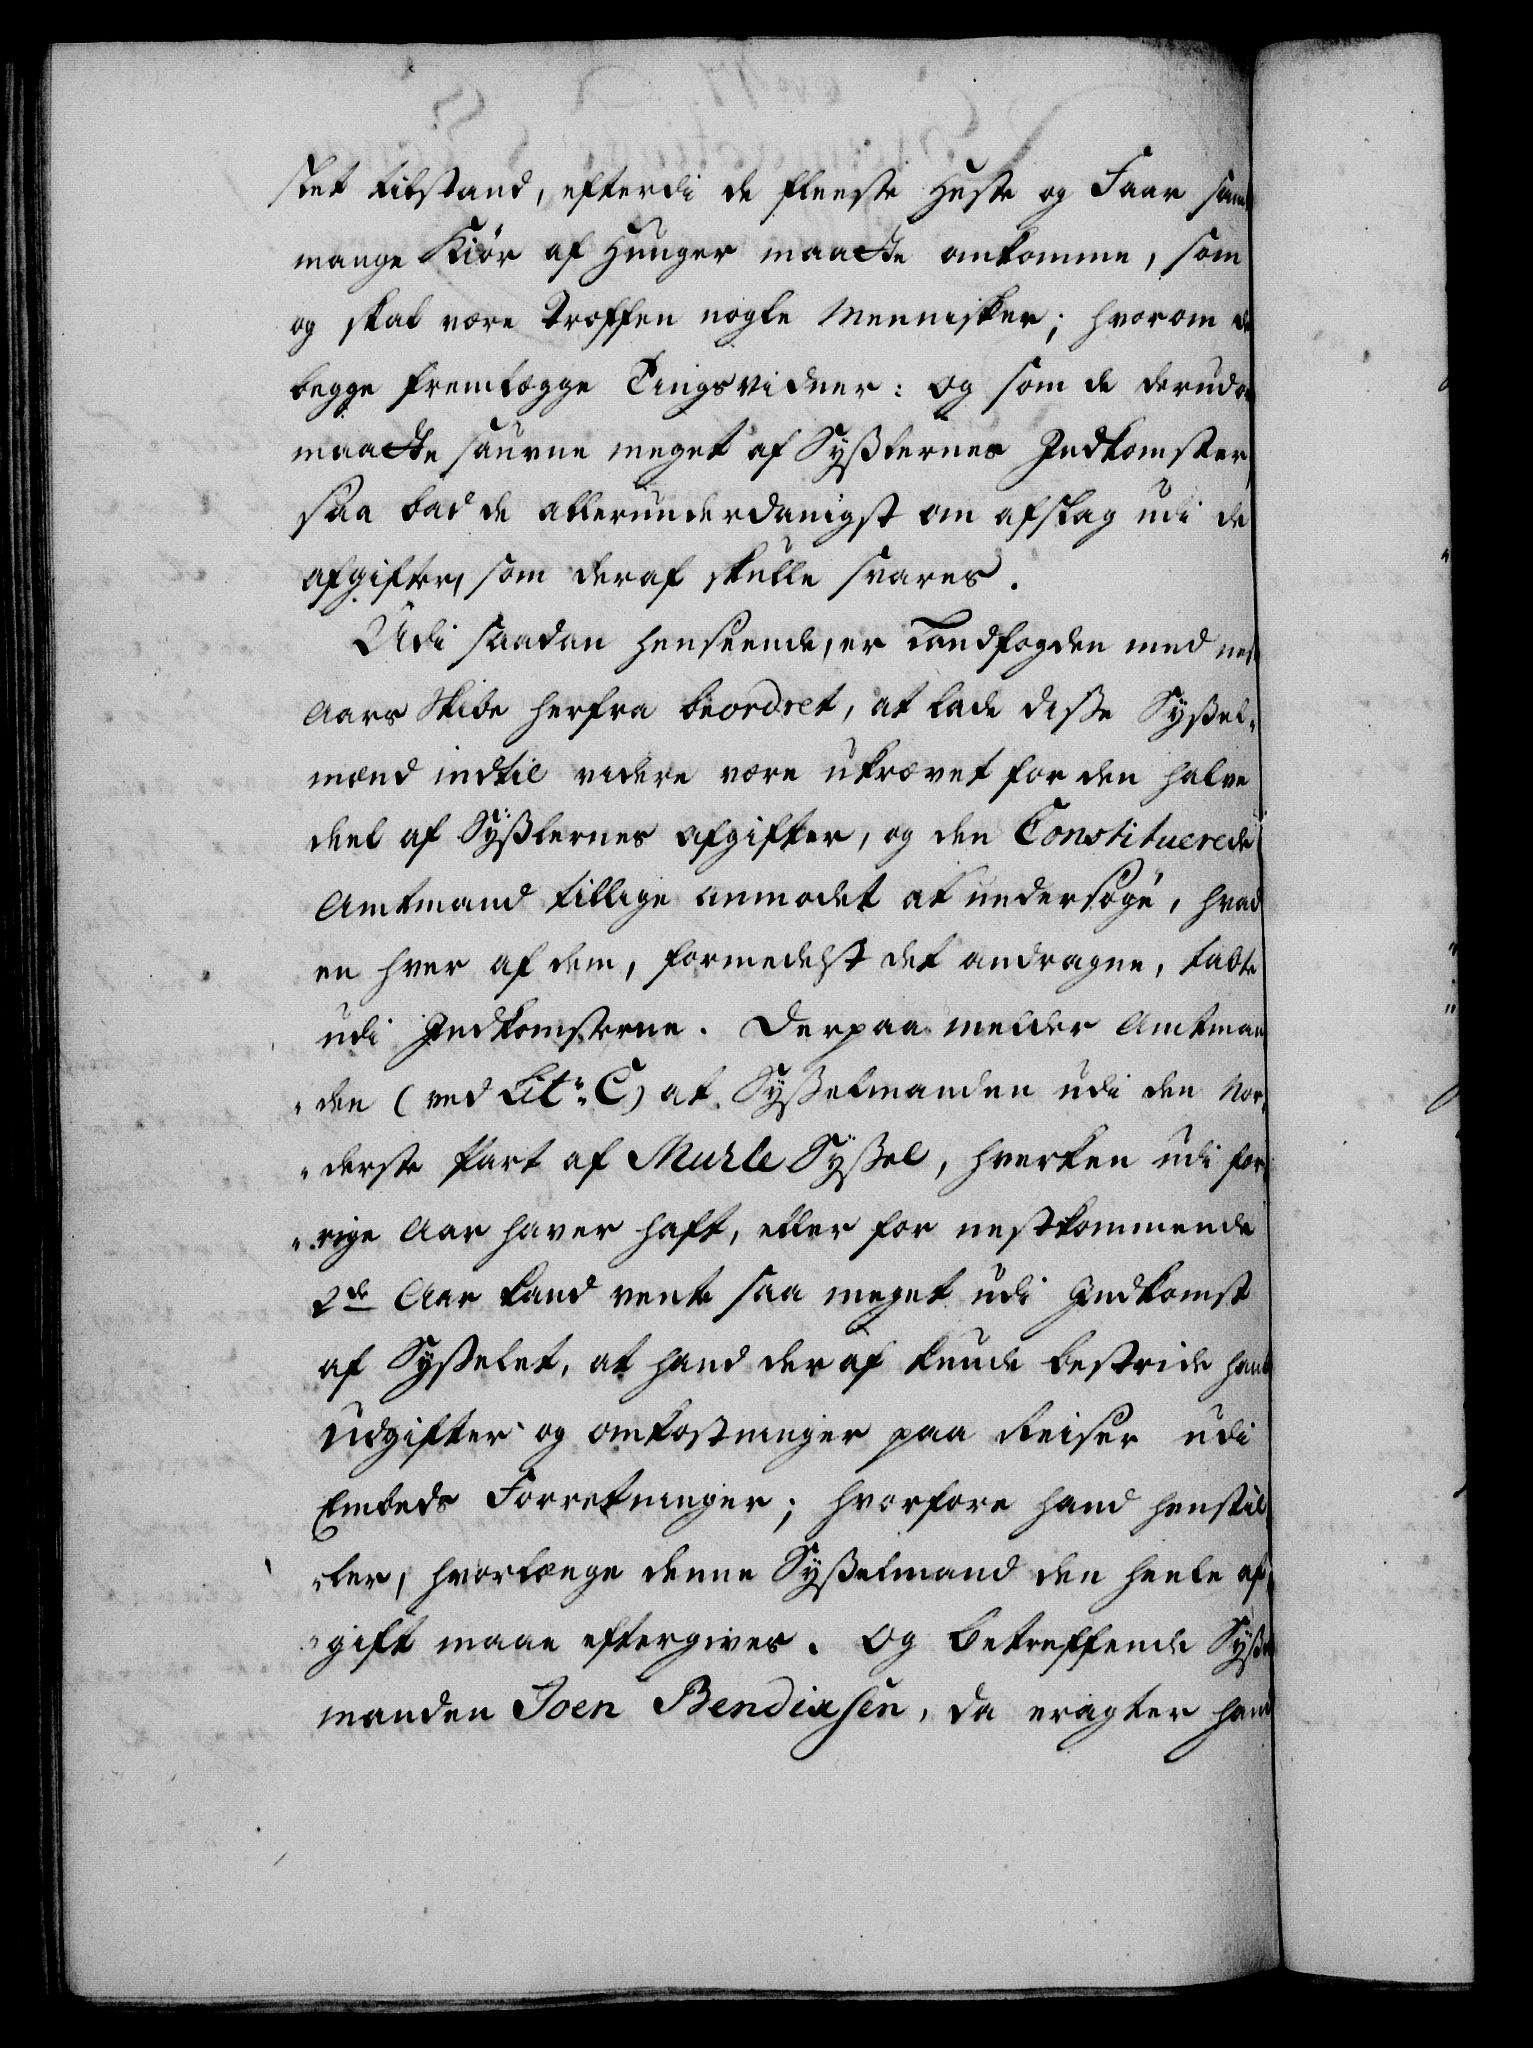 stet tilstand, efterdi de fleeste Heste og Faar samt
mange Kiör af Hunger maatte omkomme, som
og skal være Troffen nogle Mennisker; hvorom de
begge fremlægge Tingsvidner: og som de derud
maatte saune meget af Sÿßlernes Indkomster,
saa bad de allerunderdanigst om afslag udi de
afgifter, som deraf skulle svares.
Udi saadan henseende, er Landfogden med
Aars Skibe herfra beordret, at lade disse Sÿßel-
mænd indtil videre være ukrævet for den halve
deel af Sÿßlernes afgifter, og den Constituerede
Amtmand tillige anmodet at undersøge, hvad
en hver af dem, formedelst det andragne, tabte
udi Indkomsterne. Derpaa melder Amtman
"den (ved Litr: C) at Sÿßelmanden udi den Nor-
"derste Part af Muhle Sÿßel, hverken udi for-
"rige Aar haver haft, eller for nestkommende
2de Aar kand vente saa meget udi Indkomst
af Sÿßelet, at hand deraf kunde bestride hans
Udgifter og omkostninger paa Reiser udi
Embeds Forretninger; hvorfore hand henstil-
"ler, hvorlænge denne Sÿßelmand den heele af-
"gift maae eftergives. Og betreffende Sÿßel
manden Joen Bendixsen, da eragter hand